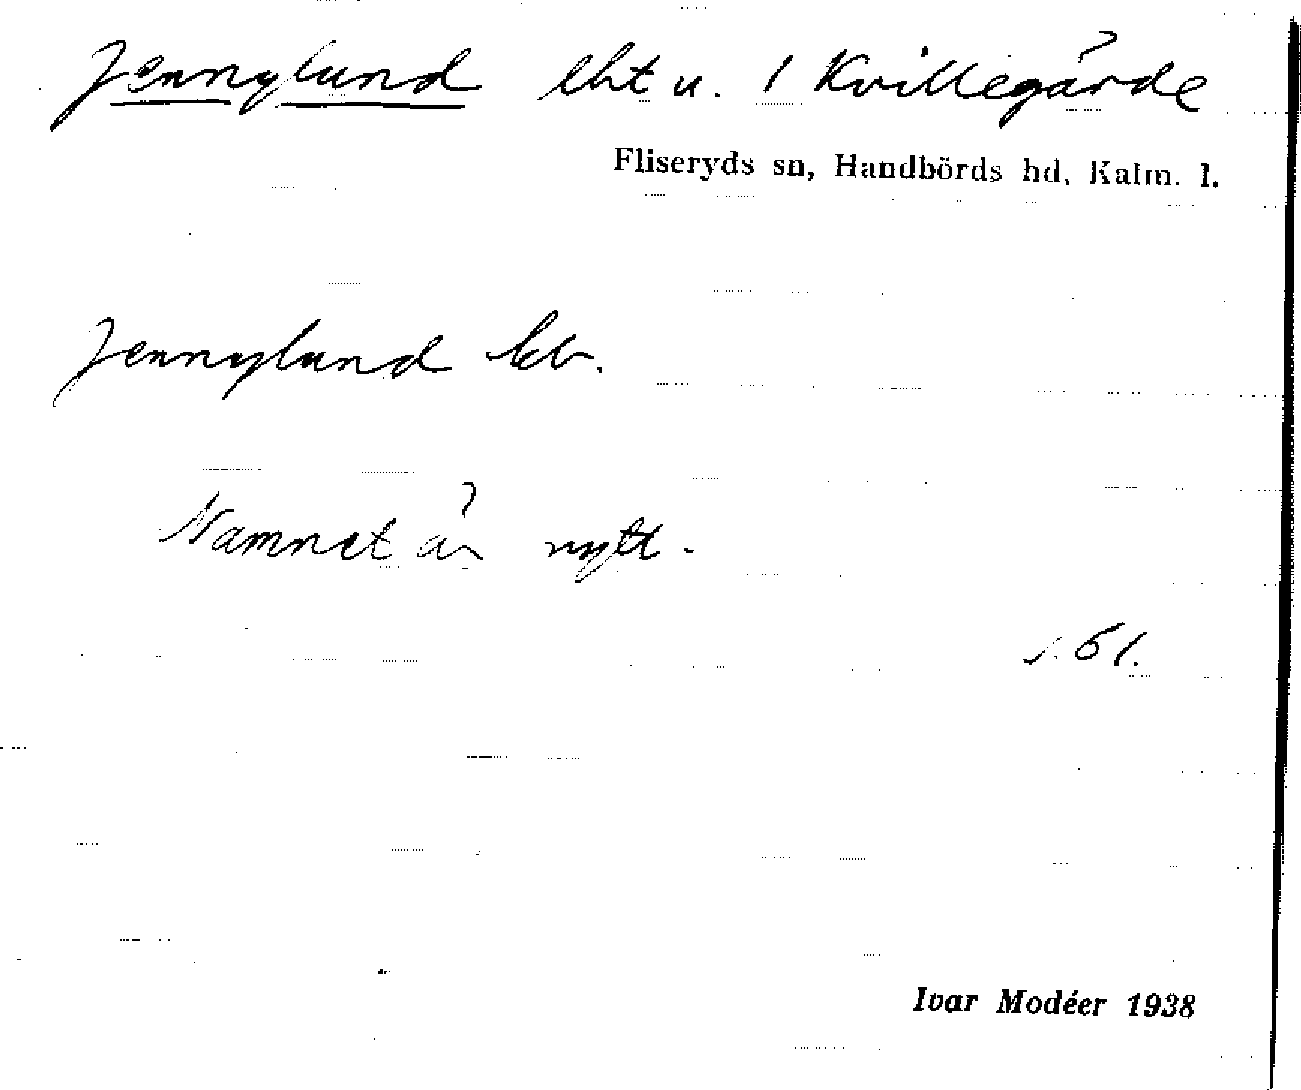 Jennylund lht u. 1 Kvillegärde
Fliseryds sn, Handbörds hd, Kalm. l.
Jennylund kb.
Namnet är nytt.
s. 61.
Ivar Modéer 1938